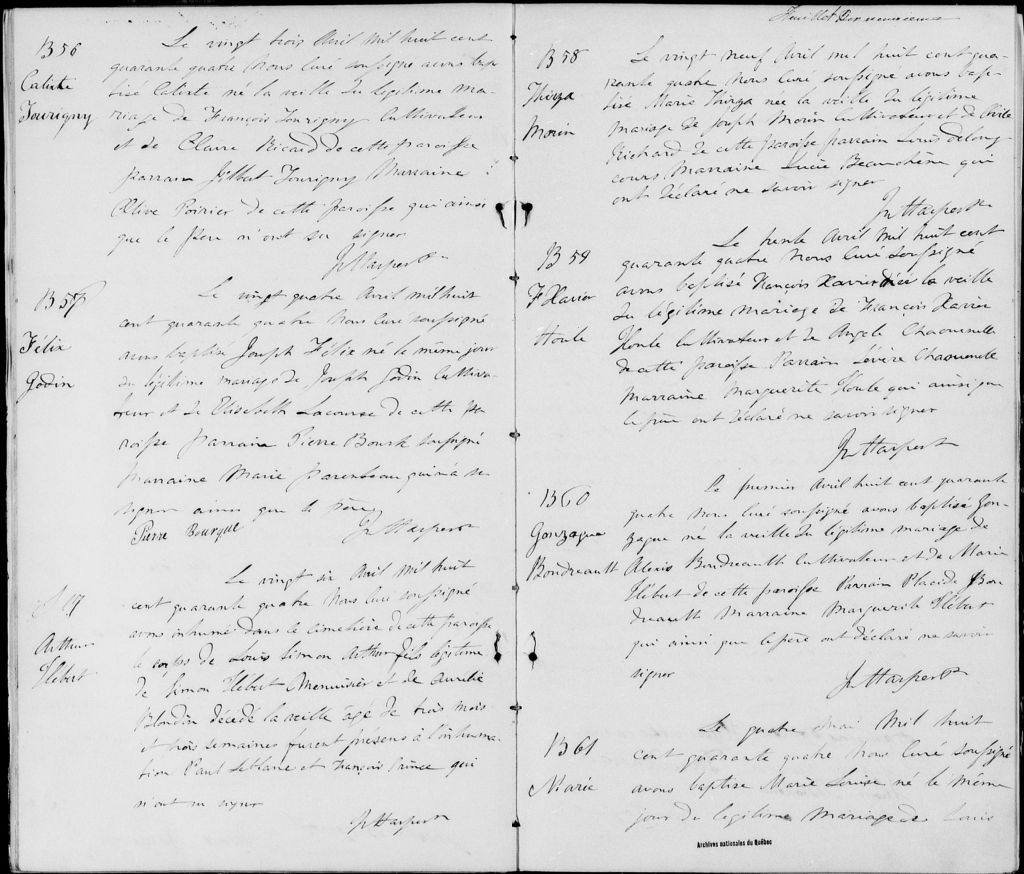 B56
Calixte
Tourigny
Le vingt trois Avril Mil huit cent
quarante quatre Nous Curé soussigné avons bap
tisé Calixte né la veille du légitime ma-
riage de François Tourigny Cultivateur
et de Claire Ricard de cette paroisse
parrain Gilbert Tourigny Marraine
Olive Poirier de cette paroisse qui ainsi
que le père n'ont su signer
Jn Harper Ptre
B57
Félix
Godin
Le vingt quatre Avril mil huit
cent quarante quatre Nous Curé soussigné
avons baptisé Joseph Félix né le même jour
du légitime mariage de Joseph Godin Cultiva-
teur et de Elisabeth Lacourse de cette pa
roisse parrain Pierre Bourk soussigné
Marraine Marie Parenteau qui n'a su
signer ainsi que le père
Pierre Bourque
Jn Harper Ptre
S 19
Arthur
Hebert
Le vingt six Avril Mil huit
cent quarante quatre Nous Curé soussigné
avons inhumé dans le cimetière de cette paroisse
le corps de Louis Simon Arthur fils légitime
de Simon Hebert Menuisier et de Aurélie
Blondin décédé la veille agé de trois mois
et trois semaines furent présens à l'inhuma-
tion Paul Leblanc et François Prince qui
n'ont su signer
Jn Harper Ptre
Feuillet
B58
Thirza
Morin
Le vingt neuf Avril mil huit cent qua-
rante quatre Nous Curé soussigné avons bap-
tisé Marie Thirza née la veille du légitime
mariage de Joseph Morin Cultivateur et de
Richard de cette paroisse parrain Louis
cours Marraine Lucie Beauchêne qui
ont déclaré ne savoir signer
Jn Harper Ptre
B59
F Xavier
Houle
Le trente Avril Mil huit cent
quarante quatre Nous Curé soussigné
avons baptisé François Xavier né la veille
du légitime mariage de François Xavier
Houle Cultivateur et de Angele
de cette paroisse Parrain Sévère
Marraine Marguerite Houle qui ainsi que
le père ont déclaré ne savoir signer
Jn Harper Ptre
B60
Gonzague
Boudreault
Le premier Avril huit cent quarante
quatre Nous Curé soussigné avons baptisé Gon-
zague né la veille du légitime mariage de
Alexis Boudreault Cultivateur et de Marie
Hébert de cette paroisse Parrain Placide Bou
dreault Marraine Marguerite Hébert
qui ainsi que le père ont déclaré ne savoir
signer
Jn Harper Ptre
B61
Marie
Le quatre Mai Mil huit
cent quarante quatre Nous Curé soussigné
avons baptisé Marie Louise né le même
jour du légitime mariage de Louis
Archives nationales du Québec